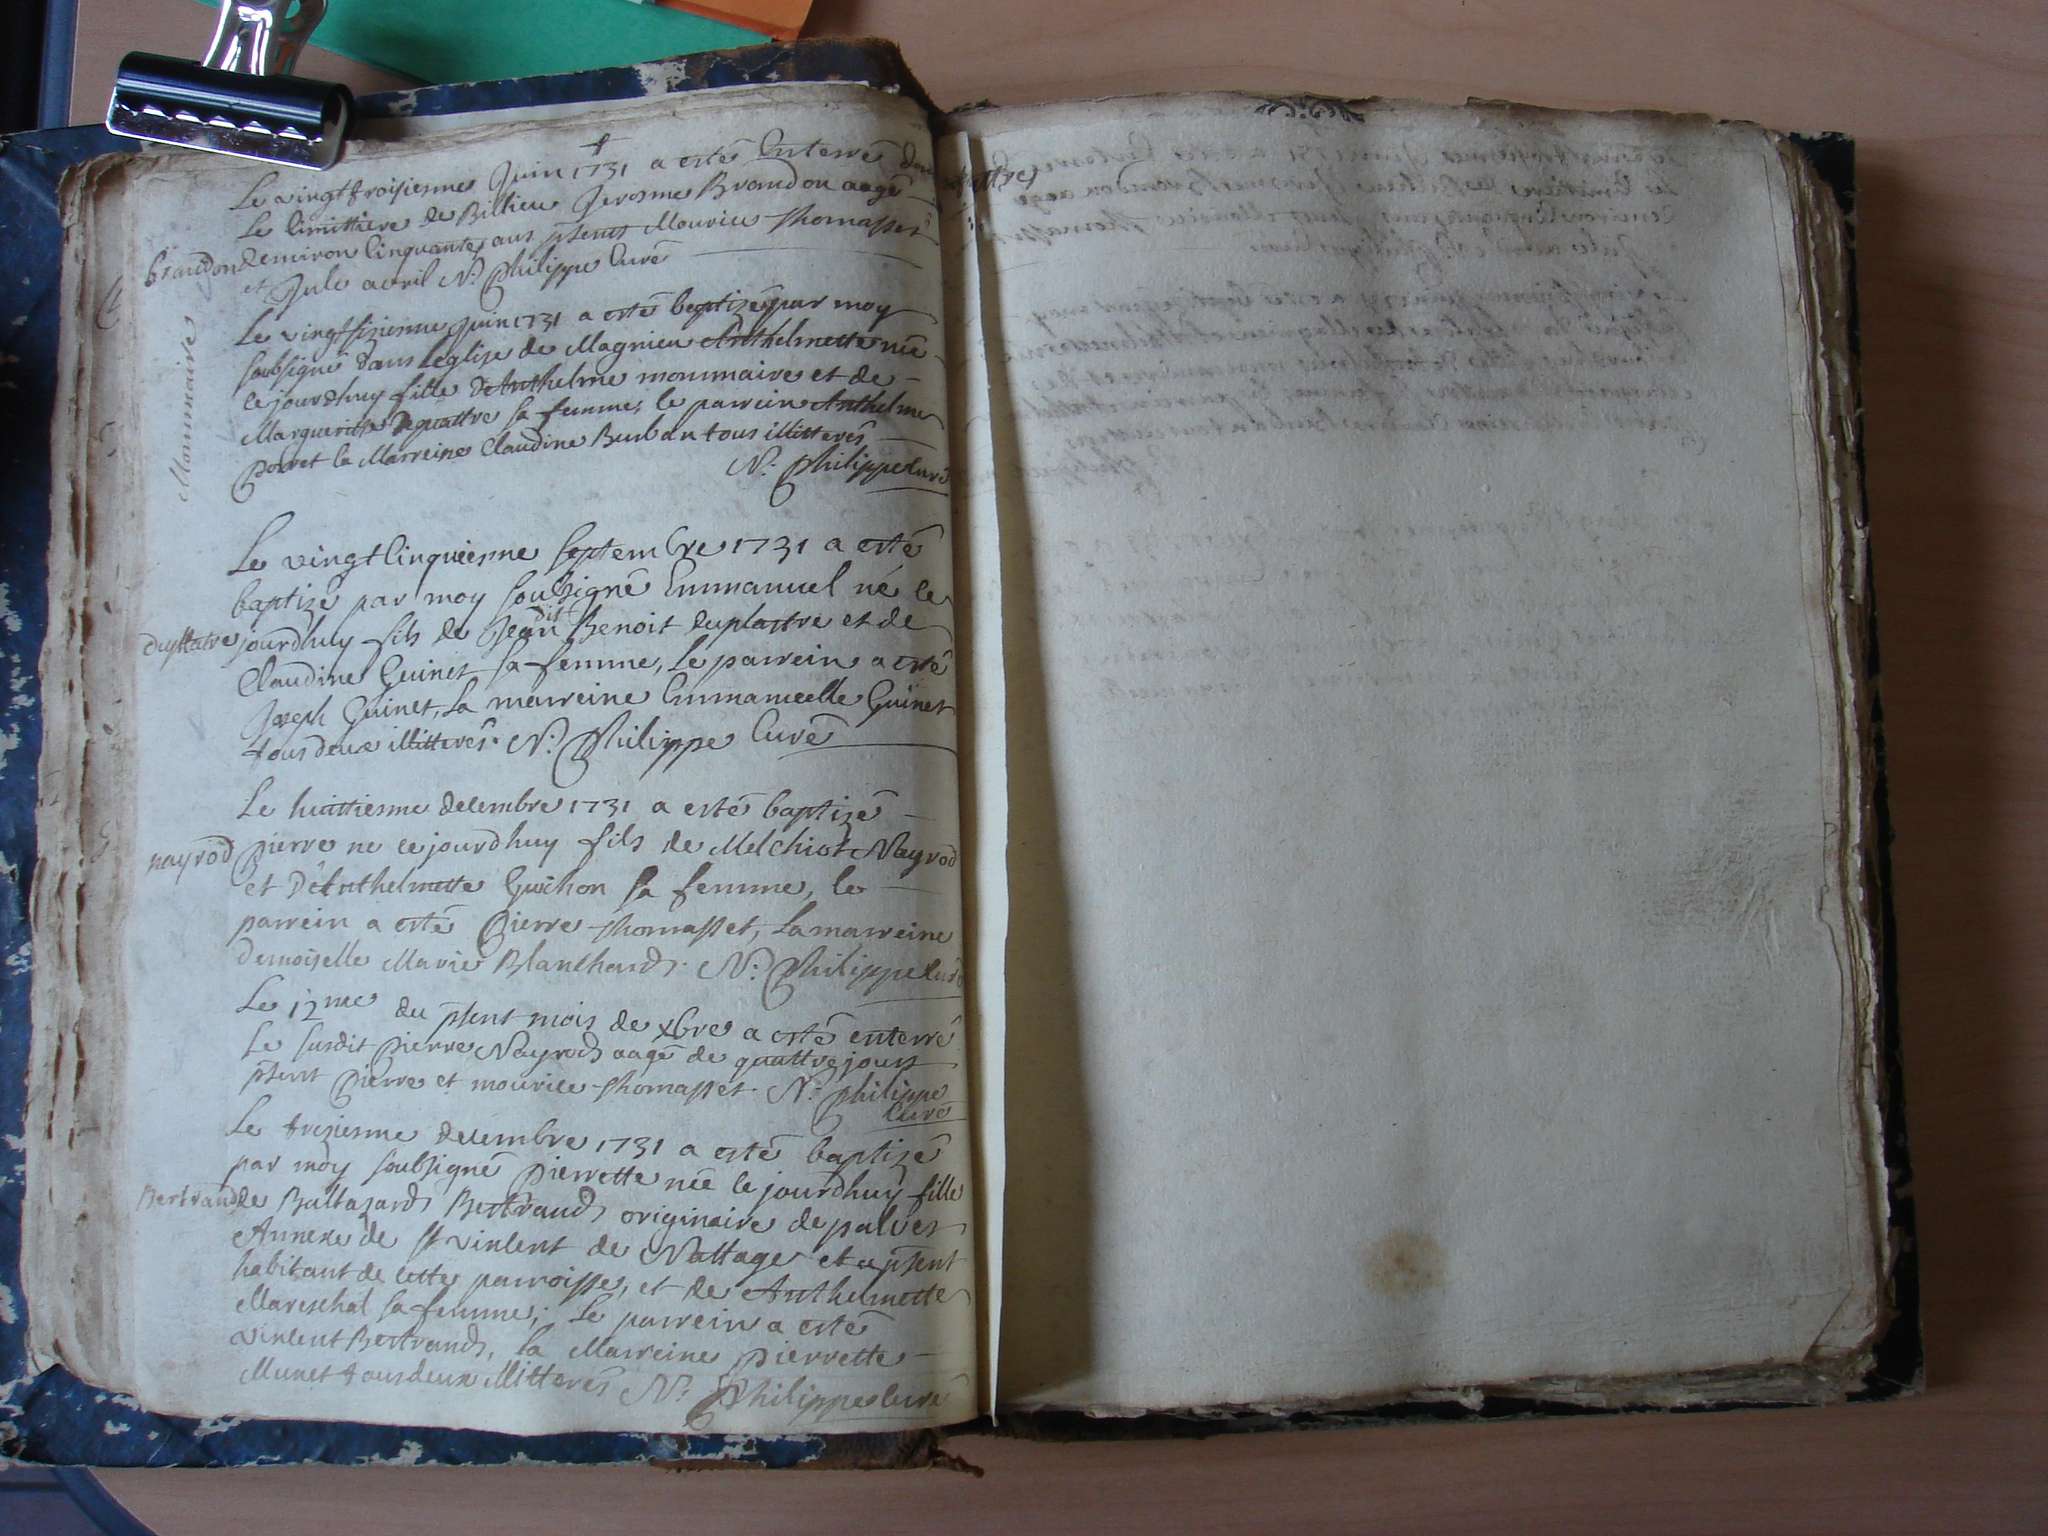 Le vingt troisiesme Juin 1731 a esté Enterré dans
Le Cimittiere de Billieu Jerosme Brandon aagé
brandon denviron Cinquante ans pñts Mourice Thomasset
et Jule avril N. Philippe Curé
Le vingt sixiesme Juin 1731 a esté baptizé par moy
soubsigné dans leglise de Magnieu Anthelmette née
Monmaire
ce jourdhuy fille d'Anthelme monmaire et de
Marguerithe Dequattre sa femme, le parrein Anthelme
Porret la Marreine Claudine Burban tous illitterés
N. Philippe Curé
Le vingt Cinquiesme septembre 1731 a esté
baptizé par moy soubsigné Emmanuel né le
duplattre jourdhuy fils de Jean dit Benoit duplattre et de
Claudine Guinet sa femme, Le parrein a esté
Joseph Guinet, La marreine Emmanuelle Guinet
tous deux illitterés. N. Philippe Curé
Le huittiesme decembre 1731 a esté baptizé
nayrod Pierre né cejourdhuy fils de Melchiot Nayrod
et D'Anthelmette Guichon sa femme, le
parrein a esté Pierre Thomasset, La marreine
demoiselle Marie Blanchard. N. Philippe Curé
Le 12me du pñt mois de xbre a esté enterré
Le susdit Pierre Nayrod aagé de quattre jours
pñt Pierre et mourice Thomasset. N. Philippe
Curé
Le treziesme decembre 1731 a esté baptizé
par moy soubsigné Pierrette née le jourdhuy fille
Bertrand de Baltazard Bertrand originaire de palver
Annexe de st vincent de Nattage et a pñt
habitant de cette parroisse, et de Anthelmette
Mareschal sa femme; Le parrein a esté
vincent Bertrand, La Marreine Pierrette
Munet tous deux illitterés N. Philippe Curé